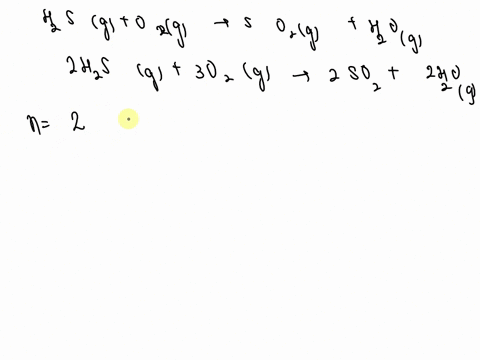 H₂S (g) + O₂(g) → S O₂(g) + H₂O (g)
2H₂S (g) + 3O₂ (g) → 2 SO₂ + 2H₂O (g)
n = 2